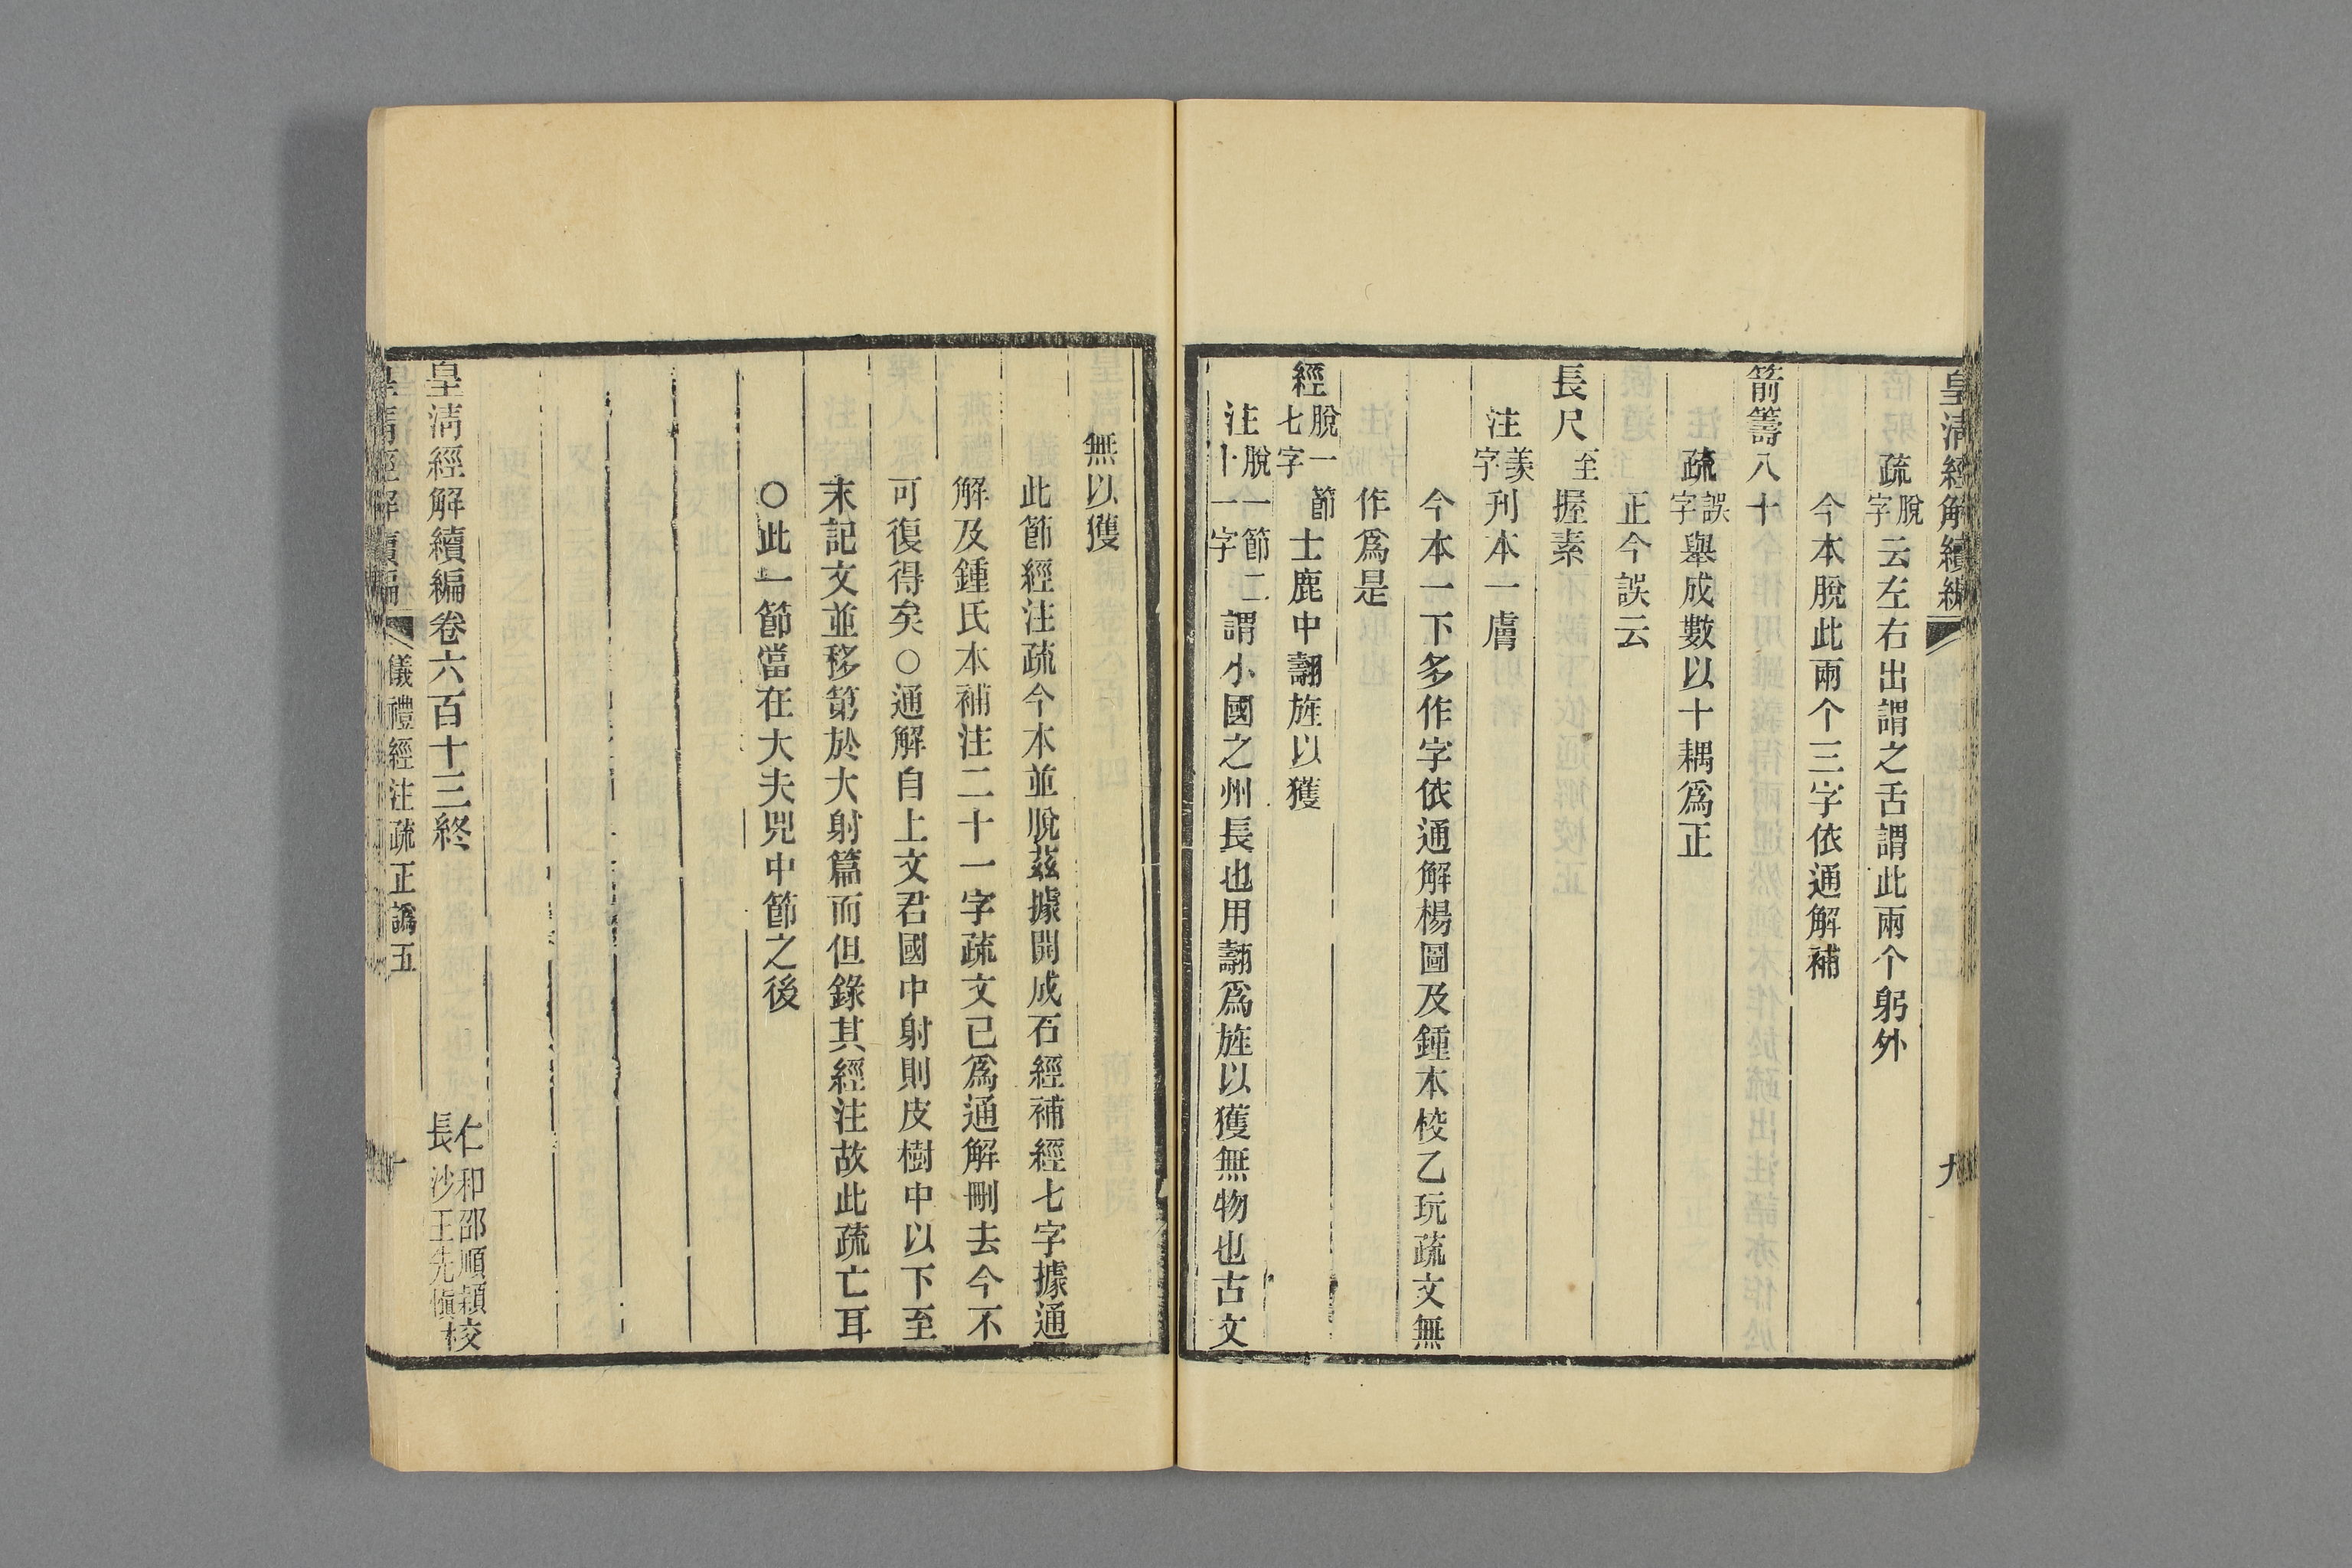 皇清經解續編 九
疏脫字云左右出謂之舌謂此兩个躬外
今本脫此兩个三字依通解補
箭籌八十
疏誤字舉成數以十耦爲正
正今誤云
長尺至握素
注羨字刊本一膚
今本一下多作字依通解楊圖及鍾本校乙玩疏文無
作爲是
經脫一節七字士鹿中翿旌以獲
注脫一節二十一字謂小國之州長也用翿爲旌以獲無物也古文
無以獲
此節經注疏今本並脫茲據開成石經補經七字據通
解及鍾氏本補注二十一字疏文已爲通解刪去今不
可復得矣○通解自上文君國中射則皮樹中以下至
末記文並移第於大射篇而但錄其經注故此疏亡耳
○此一節當在大夫兕中節之後
皇清經解續編卷六百十三終
仁和邵順穎
長沙王先慎校
皇清經解續編 儀禮經注疏正譌五